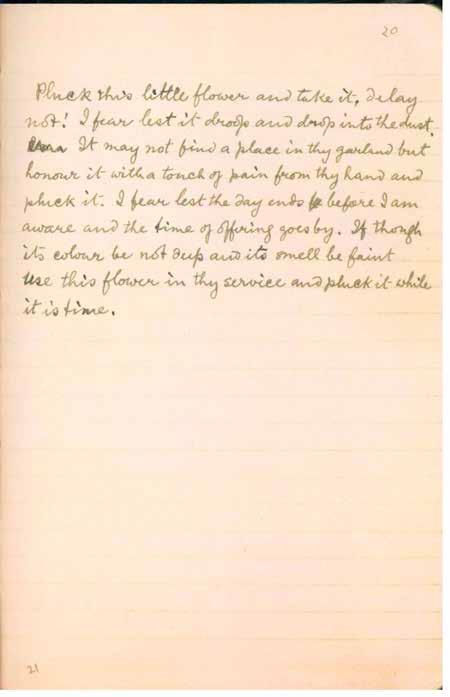 20
Pluck this little flower and take it, delay
not! I fear lest it droop and drop into the dust.
It may not find a place in thy garland but
honour it with a touch of pain from thy hand and
pluck it. I fear lest the day ends before I am
aware and the time of offering goes by. If though
its colour be not deep and its smell be faint
use this flower in thy service and pluck it while
it is time.
21